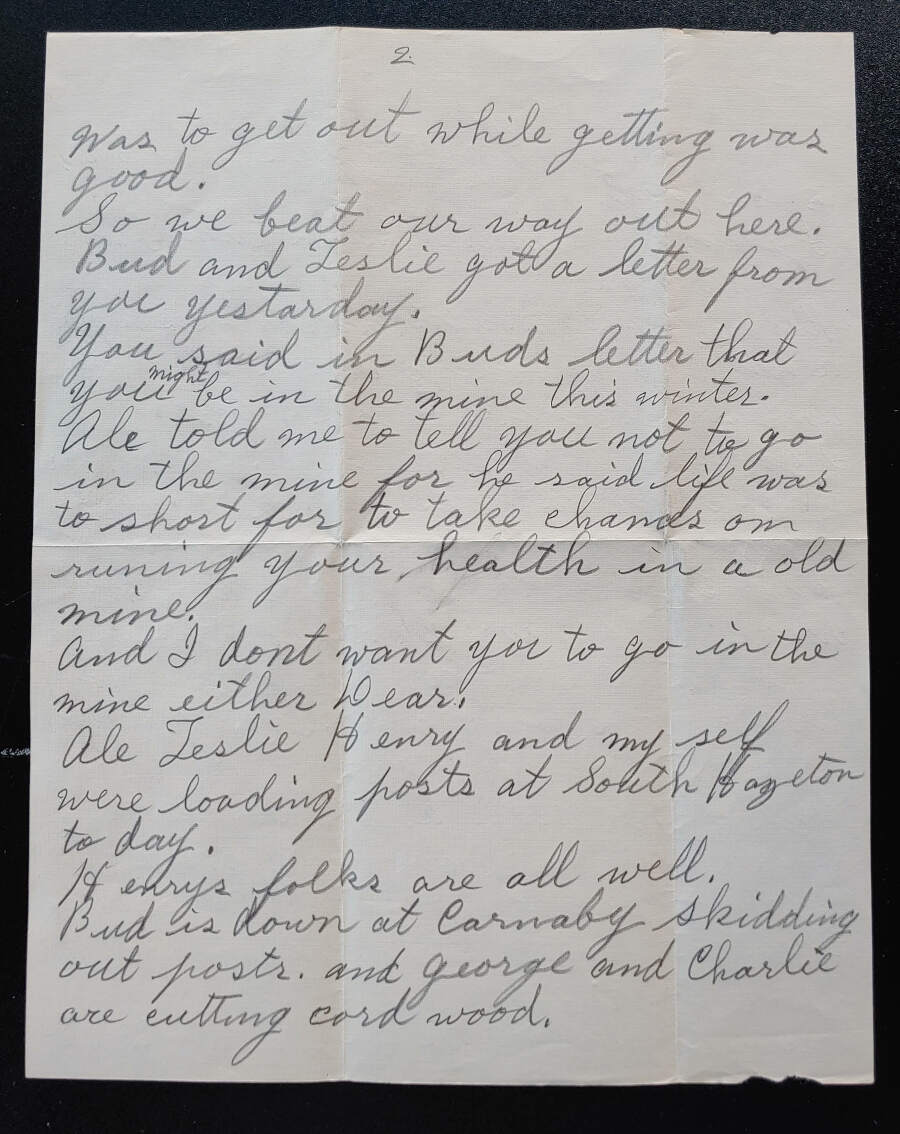 2.
Was to get out while getting was
good.
So we beat our way out here.
Bud and Leslie got a letter from
you yestarday.
You said in Buds letter that
you might be in the mine this winter.
Ale told me to tell you not to go
in the mine for he said life was
to short for to take chances on
runing your health in a old
mine.
And I dont want you to go in the
mine either Dear.
Ale Leslie Henry and my self
were loading posts at South Hazeton
to day.
Henrys folks are all well.
Bud is down at Carnaby skidding
out posts. and George and Charlie
are cutting cord wood.